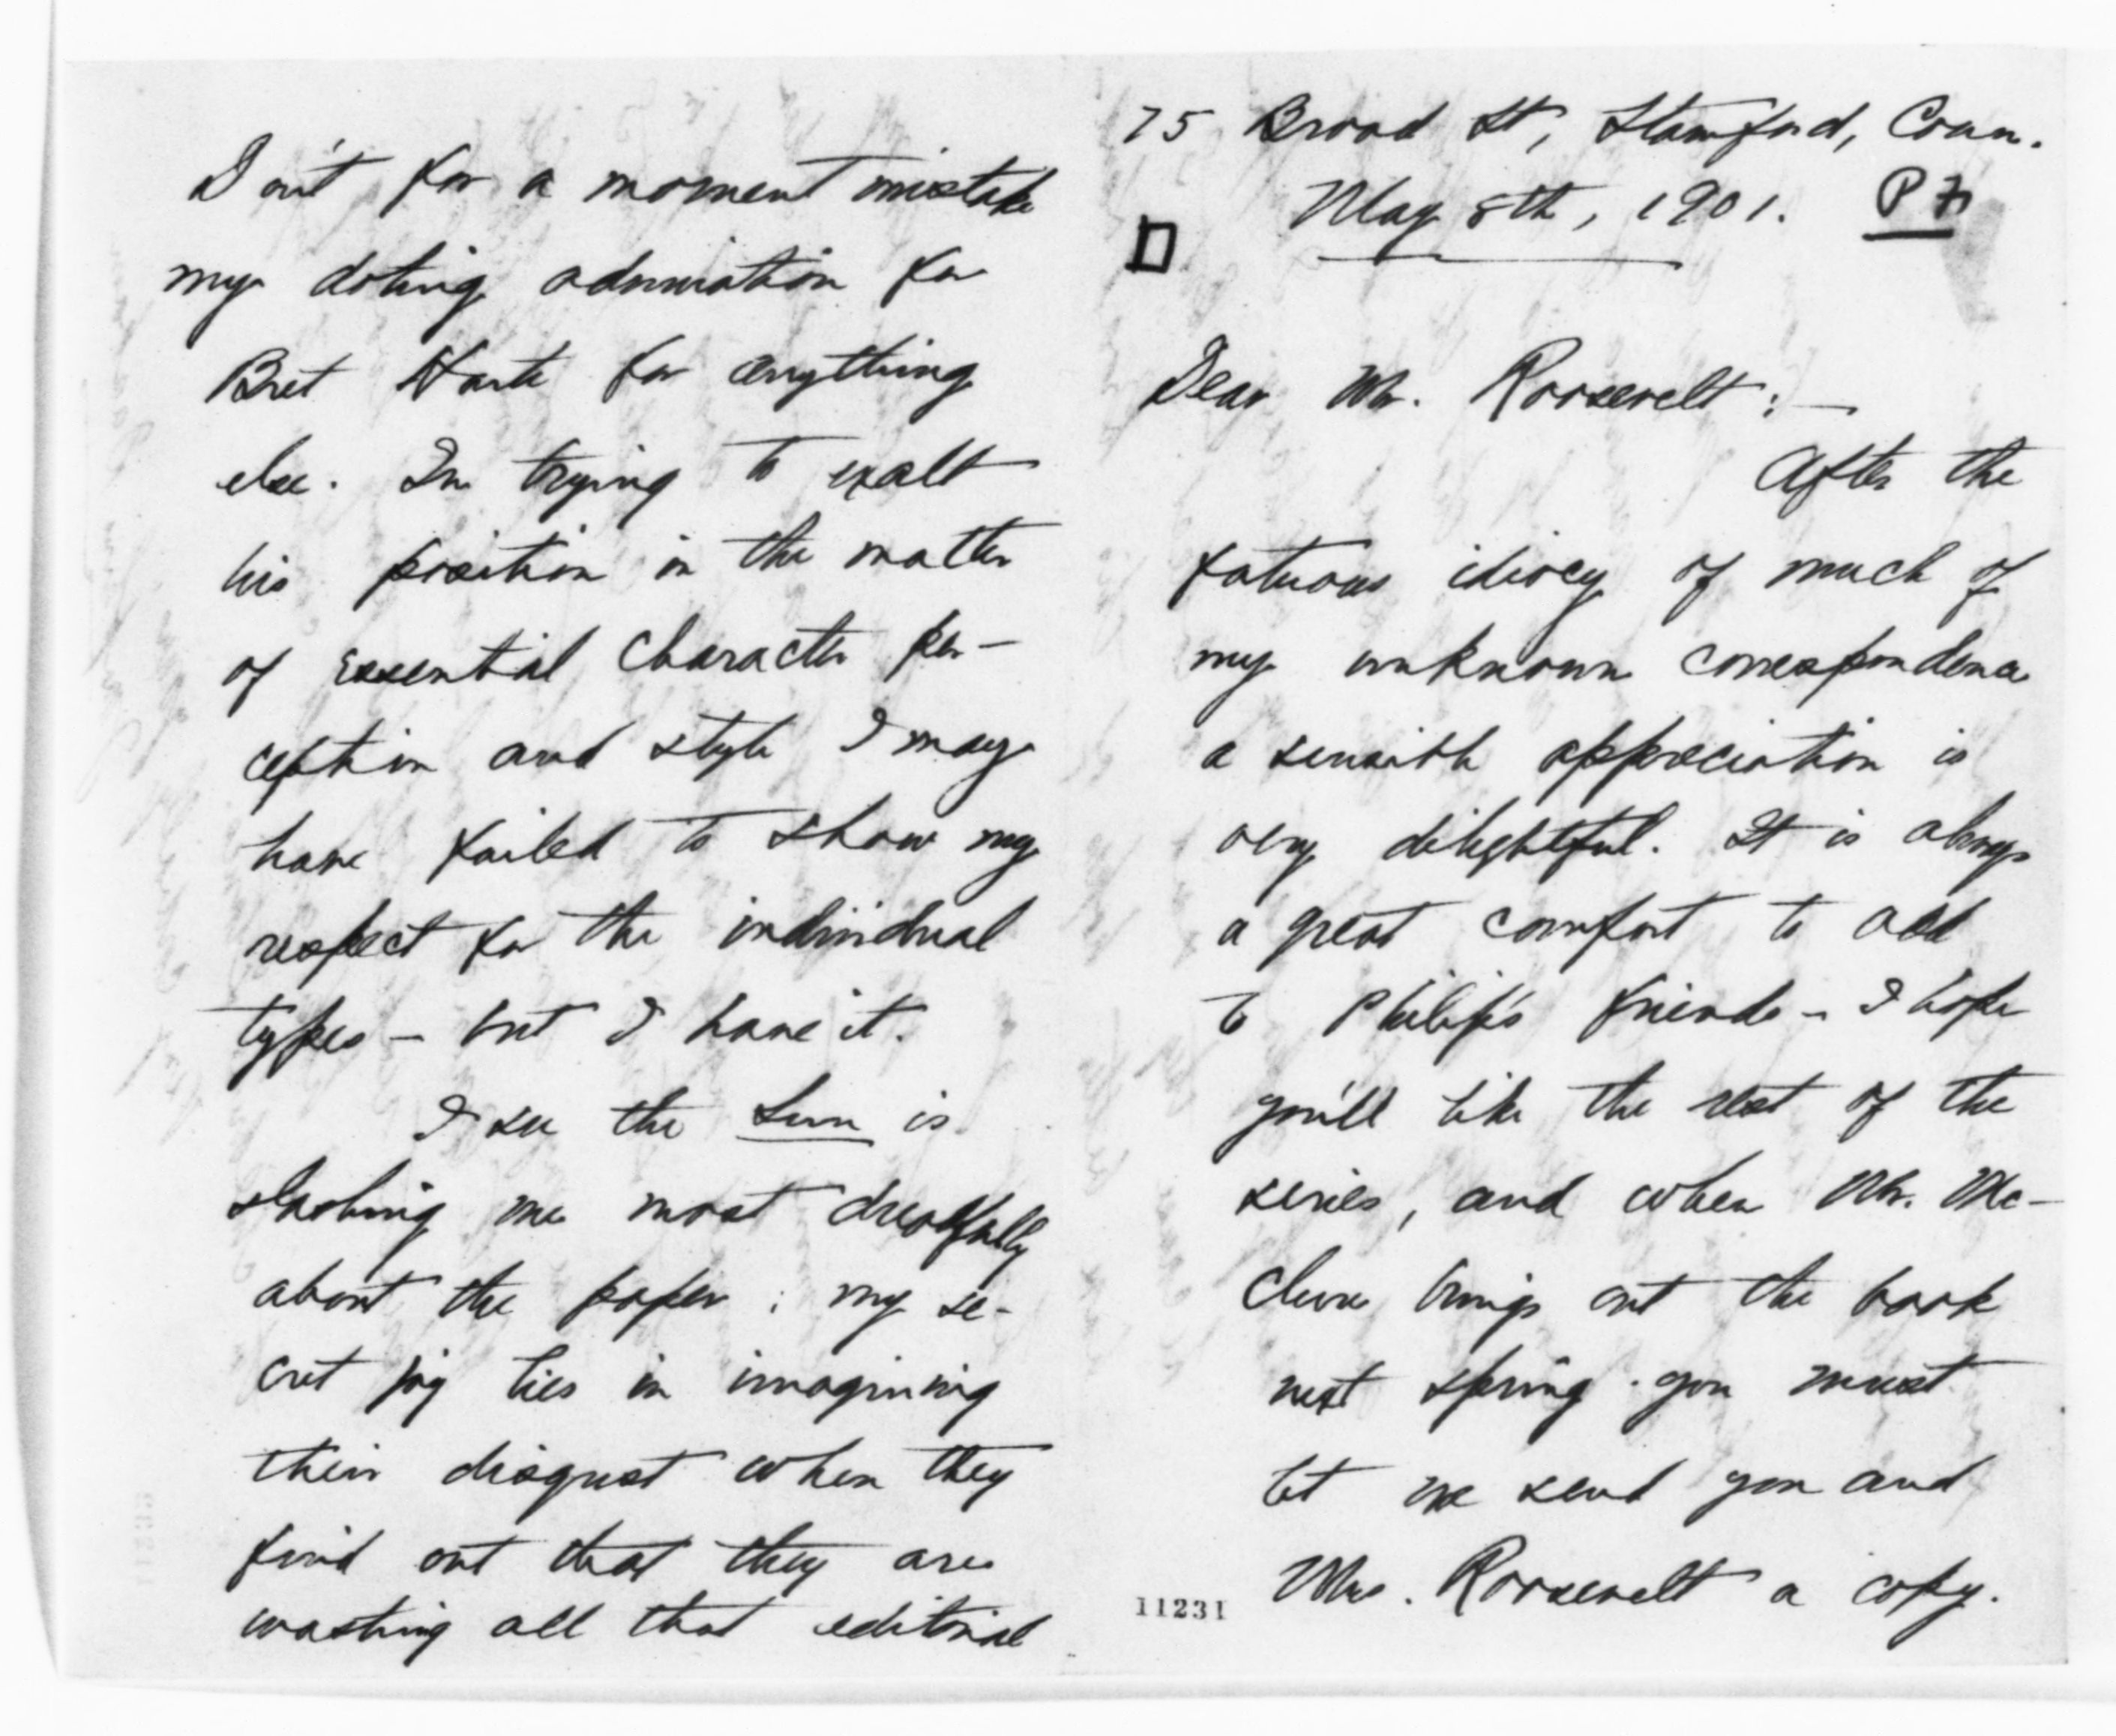 75 Broad St, Stamford, Conn.
May 8th, 1901.
Dear Mr. Roosevelt:—
After the
fatuous idiocy of much of
my unknown correspondence
a sensible appreciation is
very delightful. It is always
a great comfort to add
to Philip's friends – I hope
you'll like the rest of the
series, and when Mr. Mc-
Clure brings out the book
next spring you must
let me send you and
Mrs. Roosevelt a copy.
11231
Don't for a moment mistake
my doting admiration for
Bret Harte for anything
else. In trying to exalt
his position in the matter
of essential character per-
ception and style I may
have failed to show my
respect for the individual
types – but I have it.
I see the Sun is
slashing me most dreadfully
about the paper; my se-
cret joy lies in imagining
their disgust when they
find out that they are
wasting all that editorial